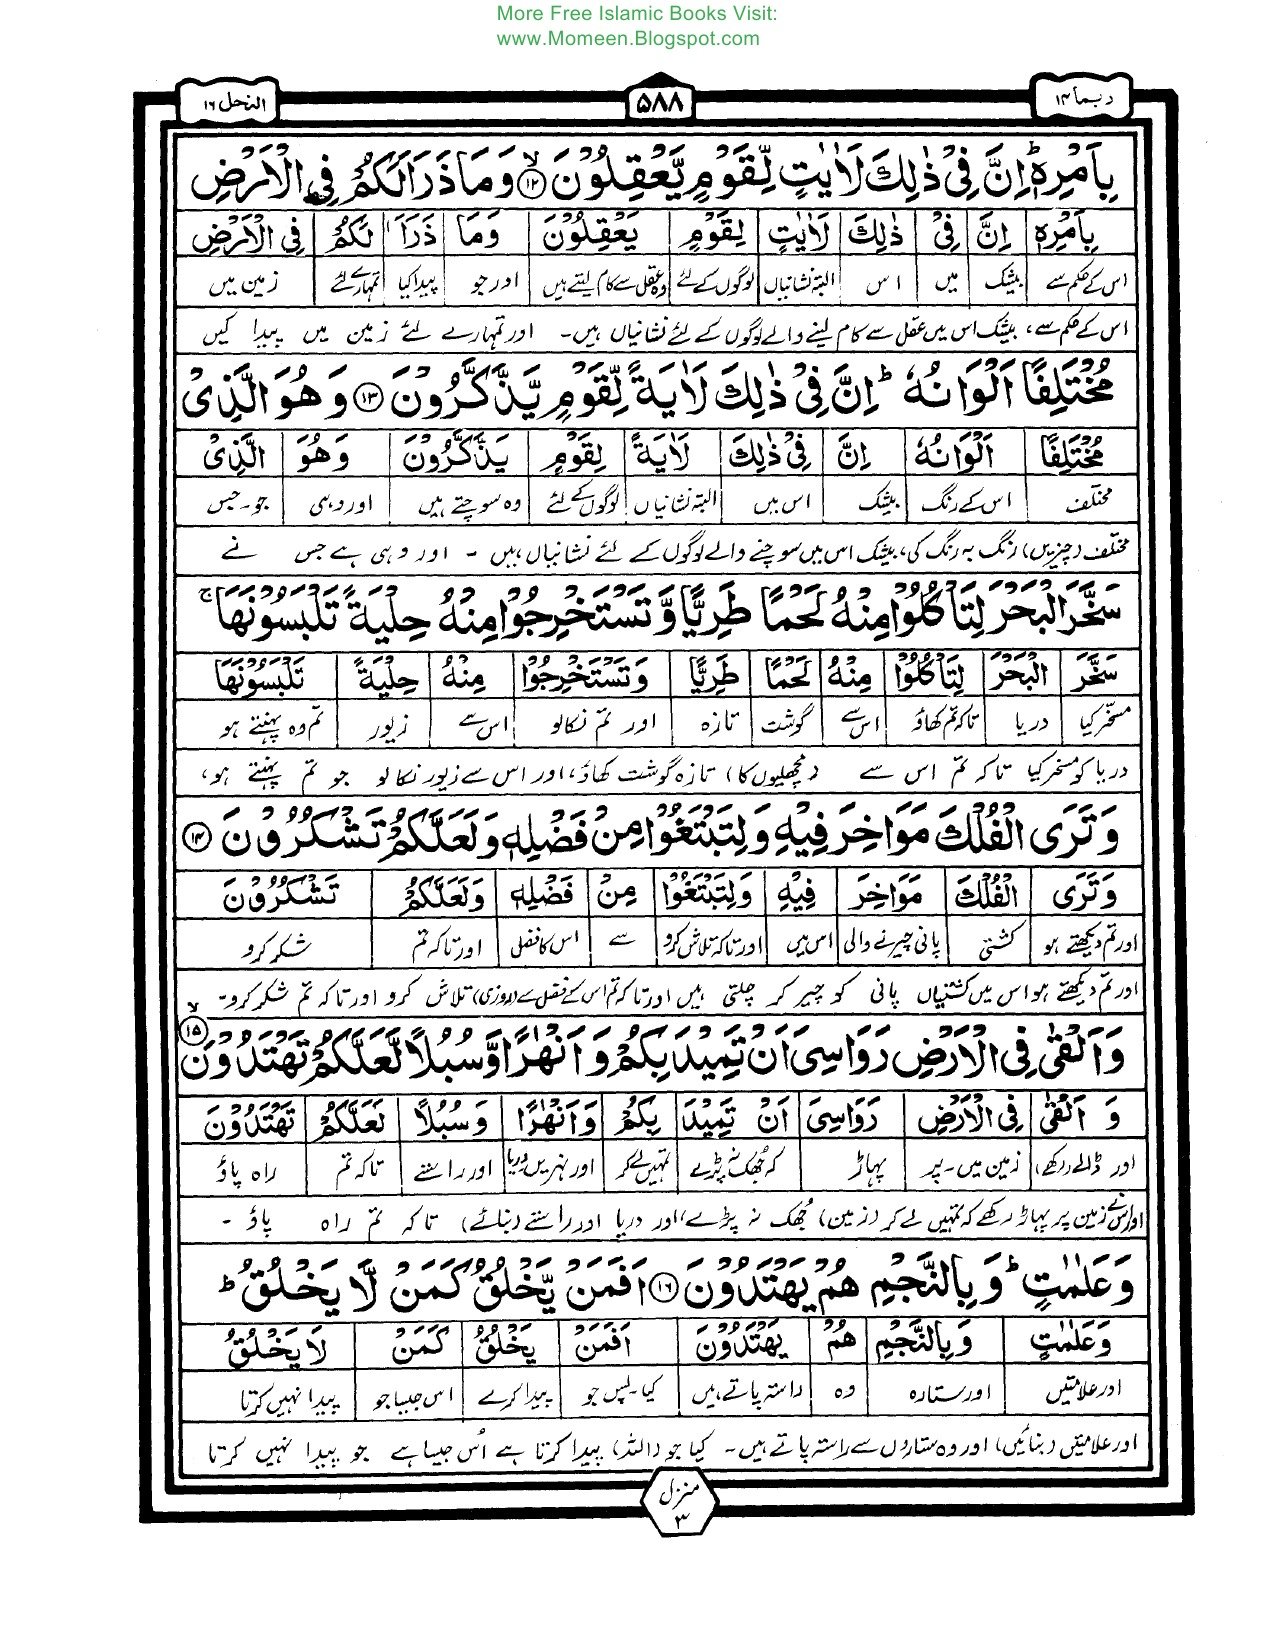 More Free Islamic Books Visit:
www.Momeen.Blogspot.com
ربما ۱۴
۵۸۸
النحل ۱۶
بِاَمْرِهٖ ؕ اِنَّ فِیْ ذٰلِكَ لَاٰیٰتٍ لِّقَوْمٍ یَّعْقِلُوْنَ ۙ ﴿۱۲﴾ وَمَا ذَرَاَ لَكُمْ فِی الْاَرْضِ
بِاَمْرِهٖ اِنَّ فِیْ ذٰلِكَ لَاٰیٰتٍ لِقَوْمٍ یَعْقِلُوْنَ وَمَا ذَرَاَ لَكُمْ فِی الْاَرْضِ
اس کے حکم سے بیشک میں اس البتہ نشانیاں لوگوں کے لئے وہ عقل سے کام لیتے ہیں اور جو پیدا کیا تمہارے لئے زمین میں
اس کے حکم سے، بیشک اس میں عقل سے کام لینے والے لوگوں کے لئے نشانیاں ہیں۔ اور تمہارے لئے زمین میں پیدا کیں
مُخْتَلِفًا اَلْوَانُهٗ ؕ اِنَّ فِیْ ذٰلِكَ لَاٰیَةً لِّقَوْمٍ یَّذَّكَّرُوْنَ ﴿۱۳﴾ وَهُوَ الَّذِیْ
مُخْتَلِفًا اَلْوَانُهٗ اِنَّ فِیْ ذٰلِكَ لَاٰیَةً لِقَوْمٍ یَذَّكَّرُوْنَ وَهُوَ الَّذِیْ
مختلف اس کے رنگ بیشک اس میں البتہ نشانیاں لوگوں کے لئے وہ سوچتے ہیں اور وہی جو۔جس
مختلف (چیزیں) رنگ بہ رنگ کی، بیشک اس میں سوچنے والے لوگوں کے لئے نشانیاں ہیں ۔ اور وہی ہے جس نے
سَخَّرَ الْبَحْرَ لِتَاْكُلُوْا مِنْهُ لَحْمًا طَرِیًّا وَّتَسْتَخْرِجُوْا مِنْهُ حِلْیَةً تَلْبَسُوْنَهَا ۚ
سَخَّرَ الْبَحْرَ لِتَاْكُلُوْا مِنْهُ لَحْمًا طَرِیًّا وَتَسْتَخْرِجُوْا مِنْهُ حِلْیَةً تَلْبَسُوْنَهَا
مسخر کیا دریا تاکہ تم کھاؤ اس سے گوشت تازہ اور تم نکالو اس سے زیور تم وہ پہنتے ہو
دریا کو مسخر کیا تاکہ تم اس سے (مچھلیوں کا) تازہ گوشت کھاؤ، اور اس سے زیور نکالو جو تم پہنتے ہو،
وَتَرَی الْفُلْكَ مَوَاخِرَ فِیْهِ وَلِتَبْتَغُوْا مِنْ فَضْلِهٖ وَلَعَلَّكُمْ تَشْكُرُوْنَ ﴿۱۴﴾
وَتَرَی الْفُلْكَ مَوَاخِرَ فِیْهِ وَلِتَبْتَغُوْا مِنْ فَضْلِهٖ وَلَعَلَّكُمْ تَشْكُرُوْنَ
اور تم دیکھتے ہو کشتی پانی چیرنے والی اس میں اور تاکہ تلاش کرو سے اس کا فضل اور تاکہ تم شکر کرو
اور تم دیکھتے ہو اس میں کشتیاں پانی کو چیر کر چلتی ہیں اور تاکہ تم اس کے فضل سے (روزی) تلاش کرو اور تاکہ تم شکر کرو۔
وَاَلْقٰی فِی الْاَرْضِ رَوَاسِیَ اَنْ تَمِیْدَ بِكُمْ وَاَنْهٰرًا وَّسُبُلًا لَّعَلَّكُمْ تَهْتَدُوْنَ ۙ ﴿۱۵﴾
وَ اَلْقٰی فِی الْاَرْضِ رَوَاسِیَ اَنْ تَمِیْدَ بِكُمْ وَاَنْهٰرًا وَسُبُلًا لَعَلَّكُمْ تَهْتَدُوْنَ
اور ڈالے (رکھے) زمین میں۔پر پہاڑ کہ جھک نہ پڑے تمہیں لے کر اور نہریں دریا اور راستے تاکہ تم راہ پاؤ
اور اس نے زمین پر پہاڑ رکھے کہ تمہیں لے کر (زمین) جھک نہ پڑے، اور دریا اور راستے (بنائے) تاکہ تم راہ پاؤ ۔
وَعَلٰمٰتٍ ؕ وَبِالنَّجْمِ هُمْ یَهْتَدُوْنَ ﴿۱۶﴾ اَفَمَنْ یَّخْلُقُ كَمَنْ لَّا یَخْلُقُ ؕ
وَعَلٰمٰتٍ وَبِالنَّجْمِ هُمْ یَهْتَدُوْنَ اَفَمَنْ یَخْلُقُ كَمَنْ لَا یَخْلُقُ
اور علامتیں اور ستارہ وہ راستہ پاتے ہیں کیا۔پس جو پیدا کرے اس جیسا جو پیدا نہیں کرتا
اور علامتیں (بنائیں) اور وہ ستاروں سے راستہ پاتے ہیں۔ کیا جو (اللہ) پیدا کرتا ہے اُس جیسا ہے جو پیدا نہیں کرتا
منزل ۳